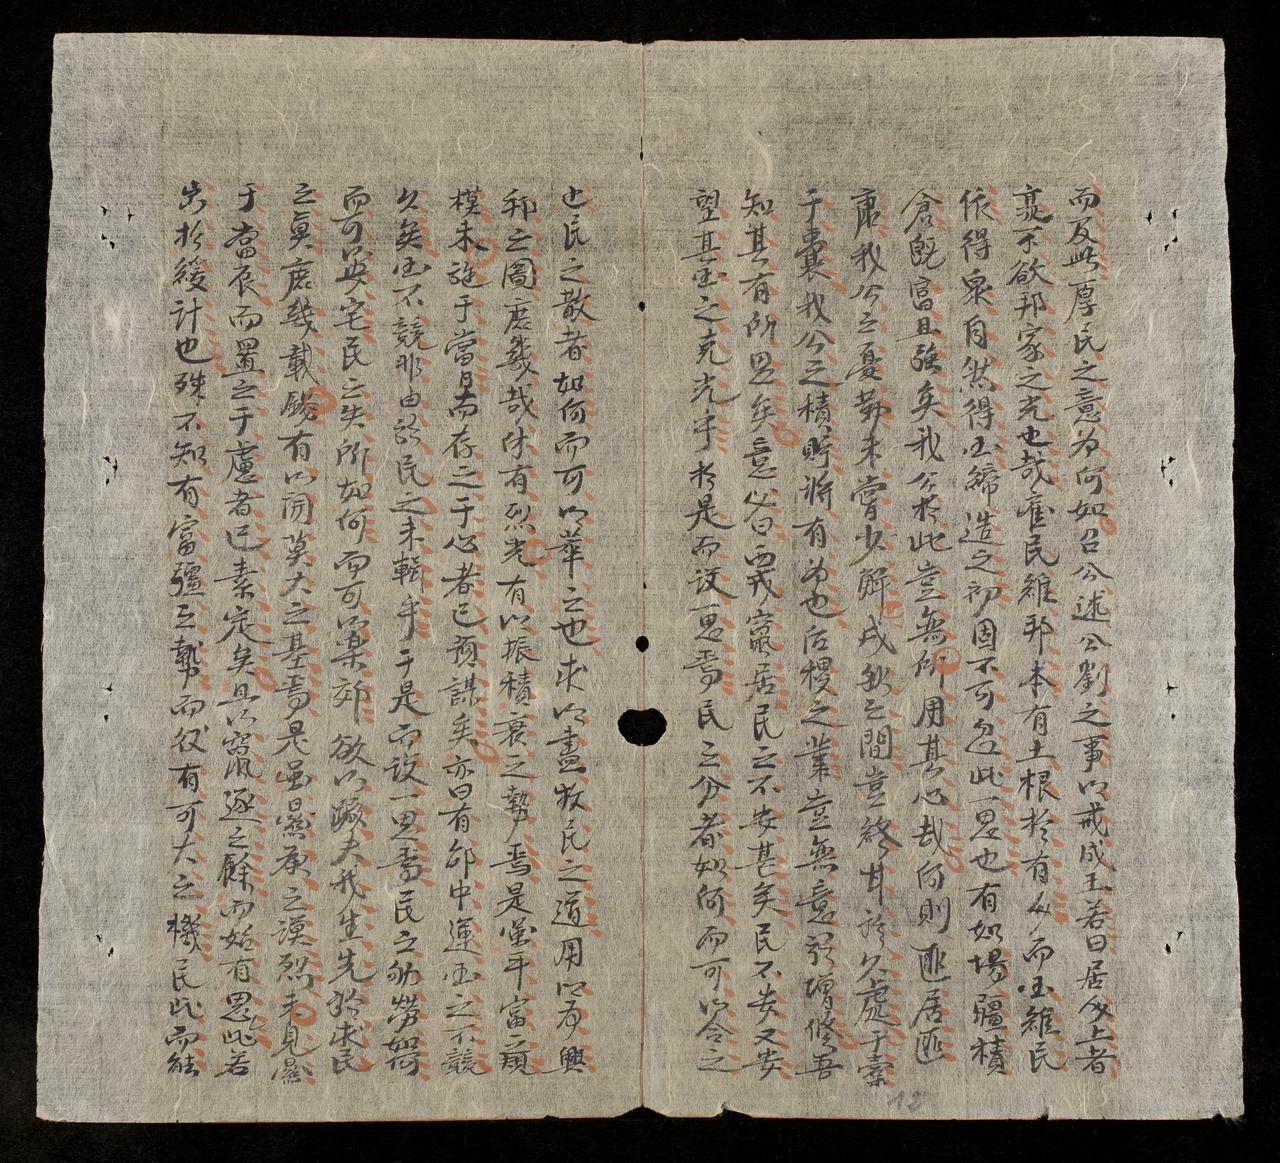 而及此厚民之意為何如召公述公劉之事以戒成王若曰居民上者
豈不欲邦家之光也哉蓋民雖邦本有土根於有民而国雖民
依得衆自然得国締造之初固不可無此一思也有如場疆積
倉既富且強矣我公於此豈無所用其心哉何則匪居匪
康我公之憂勤未嘗少解戎狄之間豈終甘於久處于橐
于囊我公之積貯將有為也后稷之業豈無意於增修吾
知其有所思矣意必曰西戎竄居民之不安甚矣民不安又安
望其国之克光乎於是而設一思焉民之分者如何而可以合之
也民之散者如何而可以萃之也求以盡牧民之道用以為興
邦之圖庶幾哉休有烈光有以振積衰之勢焉是蓋平富一顧
模未施于當日而存之于心者已預謀矣亦曰有邰中運国之不競
久矣国不競非由於民之未輯乎于是而設一思焉民之劬勞如何
而可以安宅民之失所如何而可以樂郊欲以蹶夫我生先於求民
之莫庶幾載錫有以開莫大之基焉是蓋爰康之謨烈未見顯
于當辰而置之于慮者已素定矣且以竄逐之餘而始有思此若
出於緩計也殊不知有富疆之勢而後有可大之機民此而能